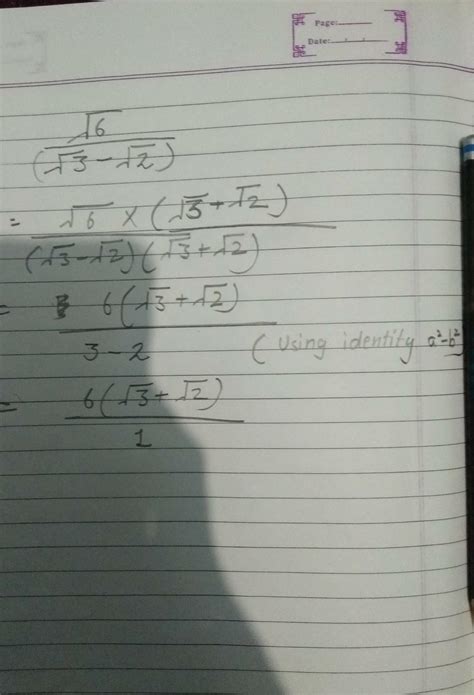 Page:
Date:
√6
(√3 - √2)
= √6 × (√3 + √2)
(√3 - √2)(√3 + √2)
= 6(√3 + √2)
3 - 2 (Using identity a²-b²
= 6(√3 + √2)
1